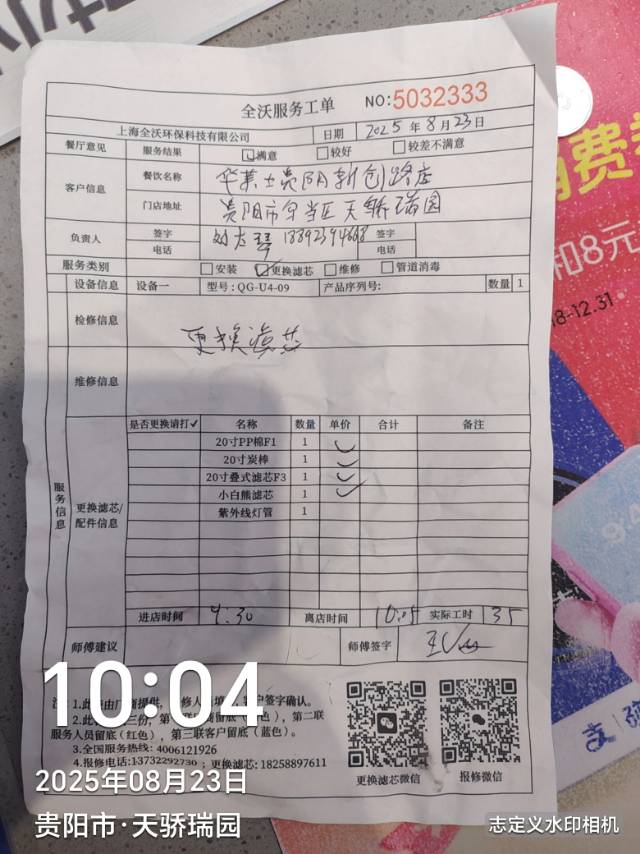 全沃服务工单 NO:5032333
上海全沃环保科技有限公司 日期 2025年8月23日
餐厅意见 服务结果 满意 较好 较差不满意
客户信息 餐饮名称 华莱士贵阳新创路店
门店地址 贵阳市乌当区天骄瑞园
负责人 签字 签字
电话 电话
服务类别 安装 更换滤芯 维修 管道消毒
设备信息 设备一 型号:QG-U4-09 产品序列号: 数量 1
检修信息
更换滤芯
维修信息
服务信息 更换滤芯/配件信息
是否更换请打✓ 名称 数量 单价 合计 备注
20寸PP棉F1 1 ✓
20寸炭棒 1 ✓
20寸叠式滤芯F3 1 ✓
小白熊滤芯 1 ✓
紫外线灯管 1
进店时间 9:30 离店时间 10:05 实际工时 35
师傅建议 师傅签字
注:1.此 由厂商提供, 修人 填 客户签字确认。
2.此 三份,第一 留底( 色),第二联
服务人员留底(红色),第三联客户留底(蓝色)。
3.全国服务热线:4006121926
4.报修电话:13732292730 ;更换滤芯:18258897611
更换滤芯微信 报修微信
10:04
2025年08月23日
贵阳市·天骄瑞园
志定义水印相机
消费
和8元
8-12.31
9:4
支